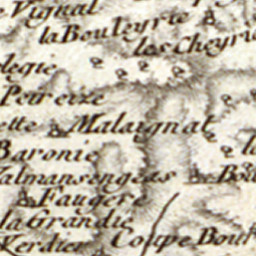 Vignal
la Bouteyrie
les Cheyri
olegie
Peireize
ette Malaignat
Baronie
Valmansengeas Bou
Faugere
la Grandie
Kerdier Coupe Bouf